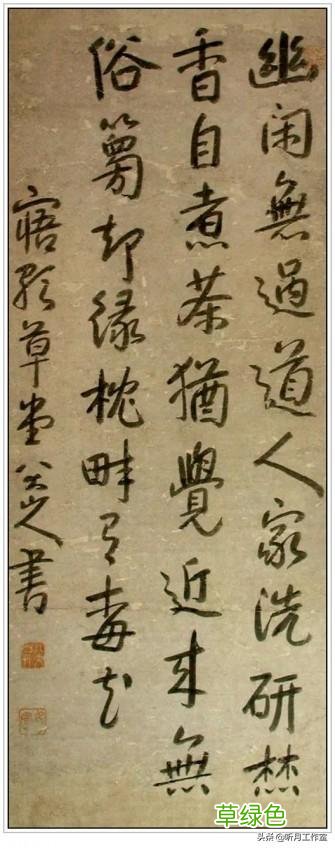 幽閑無過道人家洗研焚
香自煮茶猶覺近來無
俗夢却緣枕畔有花
寤歌草堂八大山人書
草绿色
头条@听月工作室